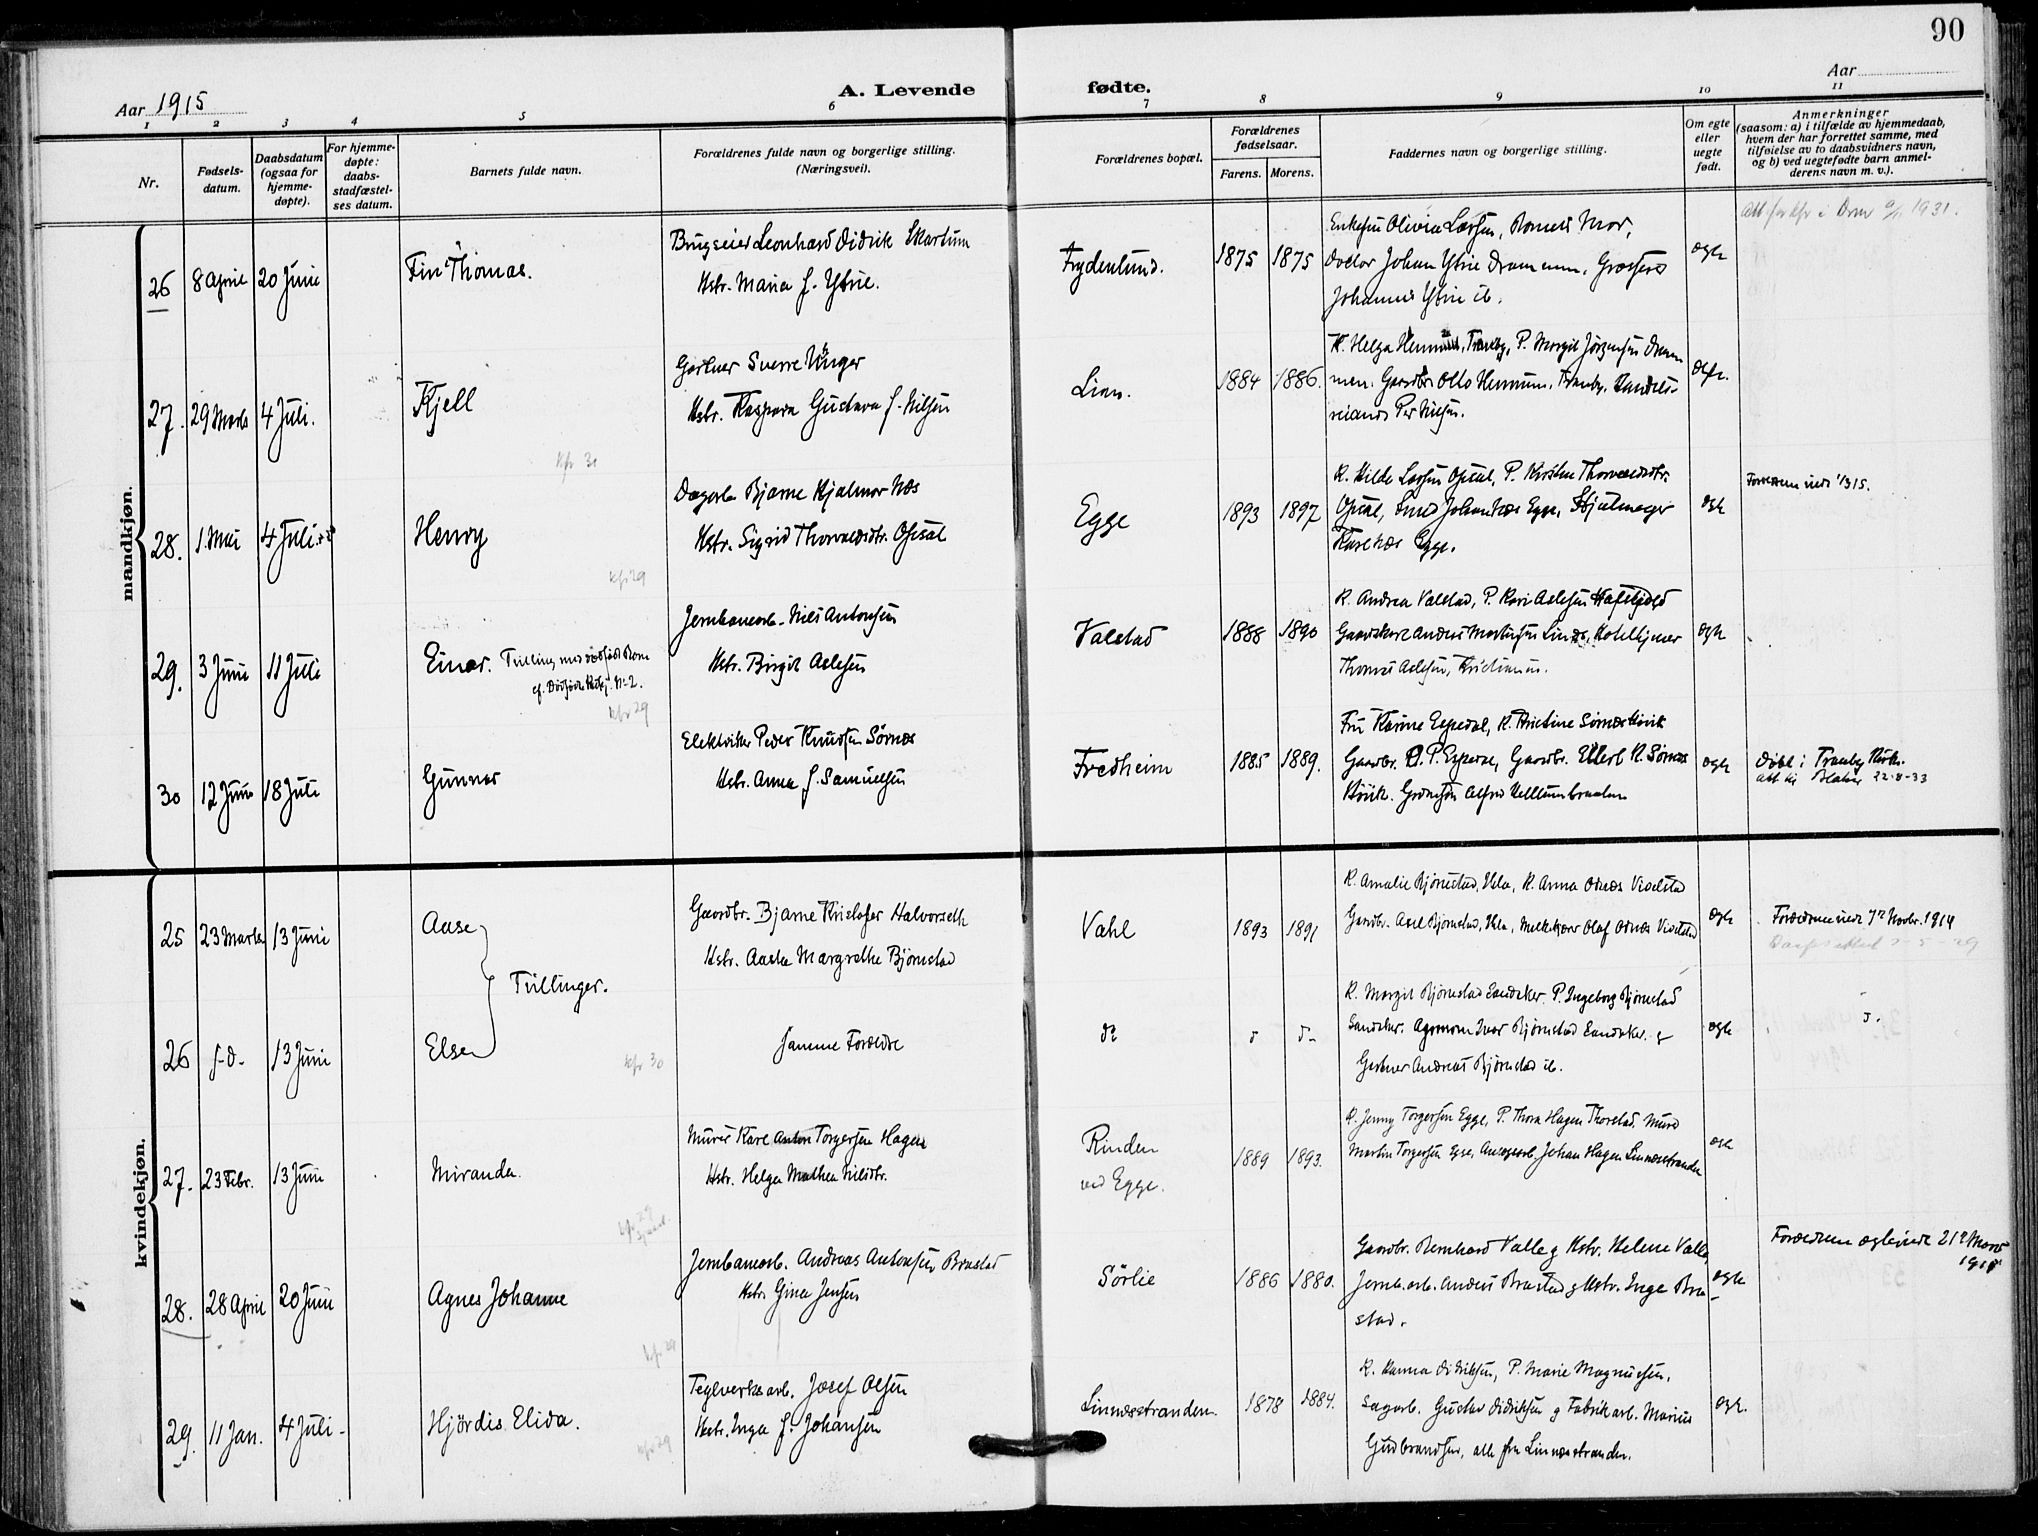 90
Aar 1915
A. Levende fødte.
Aar
1 2 3 4 5 6 7 8 9 10 11
Nr.
Fødsels-
datum.
Daabsdatum
(ogsaa for
hjemme-
døpte).
For hjemme-
døpte:
daabs-
stadfæstel-
ses datum.
Barnets fulde navn.
Forældrenes fulde navn og borgerlige stilling.
(Næringsvei).
Forældrenes bopæl.
Forældrenes
fødselsaar.
Farens. Morens.
Faddernes navn og borgerlige stilling.
Om egte
eller
uegte
født.
Anmerkninger
(saasom: a) i tilfælde av hjemmedaab,
hvem der har forrettet samme, med
tilføielse av to daabsvidners navn,
og b) ved uegtefødte barn anmel-
derens navn m. v.).
mandkjøn.
26 8 April 20 Juni Fin Thomas.
Brugseier Leonhard Didrik Skartum
Hstr. Maria f. Ytrie.
Frydenlund. 1875 1875
Enkefru Olivia Larsen, Barnets Mor,
Doctor Johan Ytrie Drammen, Grosserer
Johannes Ytrie ib.
egte
1931.
27. 29 Marts 4 Juli. Kjell
kfr 30
Gartner Sverre Unger
Hstr. Kaspara Gustava f. Nilsen
Lian. 1884 1886.
K. Helga Hennum, Tranby, P. Margit Jörgensen Dram
men. Gaardbr. Otto Hennum, Tranby, Handels-
reisende Per Nilsen.
28. 1 Mai 4 Juli Henry
kfr 29
Dagarb. Bjarne Hjalmar Næs
Hstr. Sigrid Thorvaldsdtr. Opsal
Egge 1893 1897
K. Hilda Larsen Opsal, P. Kirsten Thorvaldsdtr.
Opsal, Smed Johan Næs Egge, Hjulmager
Karl Næs Egge.
egte
Forældrene viede 1915.
29. 3 Juni 11 Juli Einar. Tvilling med dödfödt Barn
cf. Dödfödte Mkj. No 2.
kfr 29
Jernbanearb. Nils Antonsen
Hstr. Birgit Aslesen
Valstad 1888 1890
K. Andrea Valstad, P. Kari Aslesen Hafskjold
Gaardskarl Anders Martinsen Linnes, Hotelltjener
Thomas Aslesen, Kristiania.
egte
30 12 Juni 18 Juli Gunnar
Elektriker Peder Knudsen Sörnæs
Hstr. Anna f. Samuelsen
Fredheim 1885 1889.
Fru Karine Espedal, K. Kristine Sörnæs Hörik
Gaardbr. O. P. Espedal, Gaardbr. Ellert K. Sörnæs
Hörik. Grosserer Alfred Kittlumbraaten
egte
Döbt i Tranby Kirke.
att til Blaker 22-8-33
kvindekjøn.
25 23 Marts 13 Juni Aase
Tvillinger.
Gaardbr. Bjarne Kristoffer Halvorseth
Hstr. Aasta Margrethe Björnstad
Vahl 1893 1891
K. Amalie Björnstad, Hola, K. Anna Odnæs Viselstad
Gardbr. Axel Björnstad, Hola, Melkekjører Olaf Odnæs Viselstad
egte
Forældrene viede 7de Novbr. 1914
26 s-d- 13 Juni Else
kfr 30
Samme Forældre
do
K. Margit Björnstad Sandaker. P. Ingeborg Björnstad
Sandaker. Agronom Ivar Björnstad Sandaker. &
Gartner Andreas Björnstad ib.
egte
27. 23 Febr. 13 Juni Miranda.
Murer Karl Anton Torgersen Hagen
Hstr. Helga Mathea Nilsdtr.
Rinden
ved Egge. 1889 1893.
K. Jenny Torgersen Egge, P. Thora Hagen Thorstad. Murer
Martin Torgersen Egge, Johan Hagen Linnesstranden
egte
28. 28 April 20 Juni Agnes Johanne
Jernbanearb. Andreas Antonsen Brastad
Hstr. Gina Jensen
Sörlie 1886 1880.
Gaardbr. Bernhard Valle og Hstr. Helene Valle,
Jernb.arb. Anders Brastad og Hstr. Inga Bra
stad.
egte
Forældrene egteviede 21de Marts
29. 11 Jan. 4 Juli Hjördis Elida.
kfr 29
Teglverksarb. Josef Olsen
Hstr. Inga f. Johansen
Linnesstranden. 1878 1884.
K. Hanna Didriksen, P. Marie Magnussen,
Sagarb. Gustav Didriksen og Fabrikarb. Marius
Gudbrandsen, alle fra Linnesstranden.
egte.